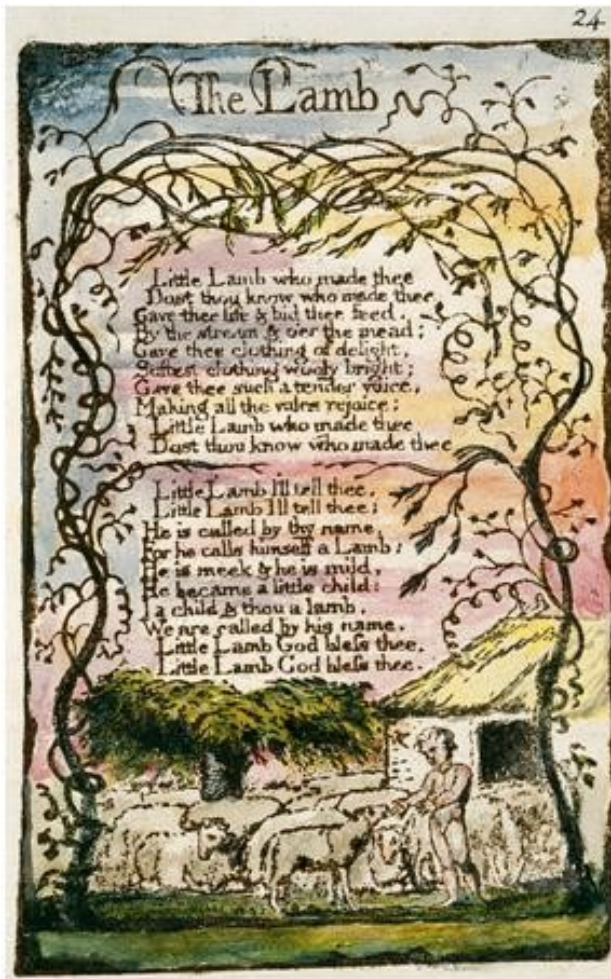 24
The Lamb
Little Lamb who made thee
Dost thou know who made thee
Gave thee life & bid thee feed.
By the stream & o'er the mead;
Gave thee clothing of delight,
Softest clothing wooly bright;
Gave thee such a tender voice,
Making all the vales rejoice;
Little Lamb who made thee
Dost thou know who made thee
Little Lamb I'll tell thee,
Little Lamb I'll tell thee;
He is called by thy name,
For he calls himself a Lamb:
He is meek & he is mild,
He became a little child:
I a child & thou a lamb,
We are called by his name.
Little Lamb God bless thee.
Little Lamb God bless thee.